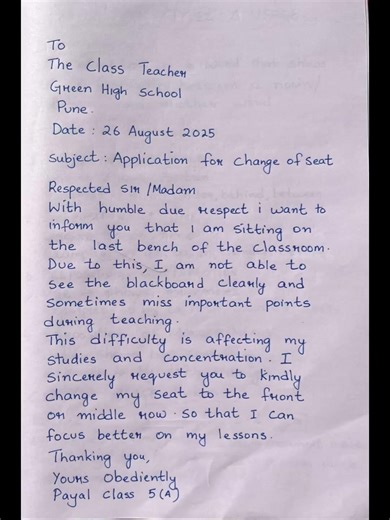 To
The Class Teacher
Green High School
Pune.
Date : 26 August 2025
Subject : Application for change of seat
Respected Sir/Madam
With humble due respect i want to
inform you that I am sitting on
the last bench of the classroom.
Due to this, I, am not able to
see the blackboard clearly and
sometimes miss important points
during teaching.
This difficulty is affecting my
studies and concentration. I
sincerely request you to kindly
change my seat to the front
or middle row. So that I can
focus better on my lessons.
Thanking you,
Yours Obediently
Payal Class 5(A)